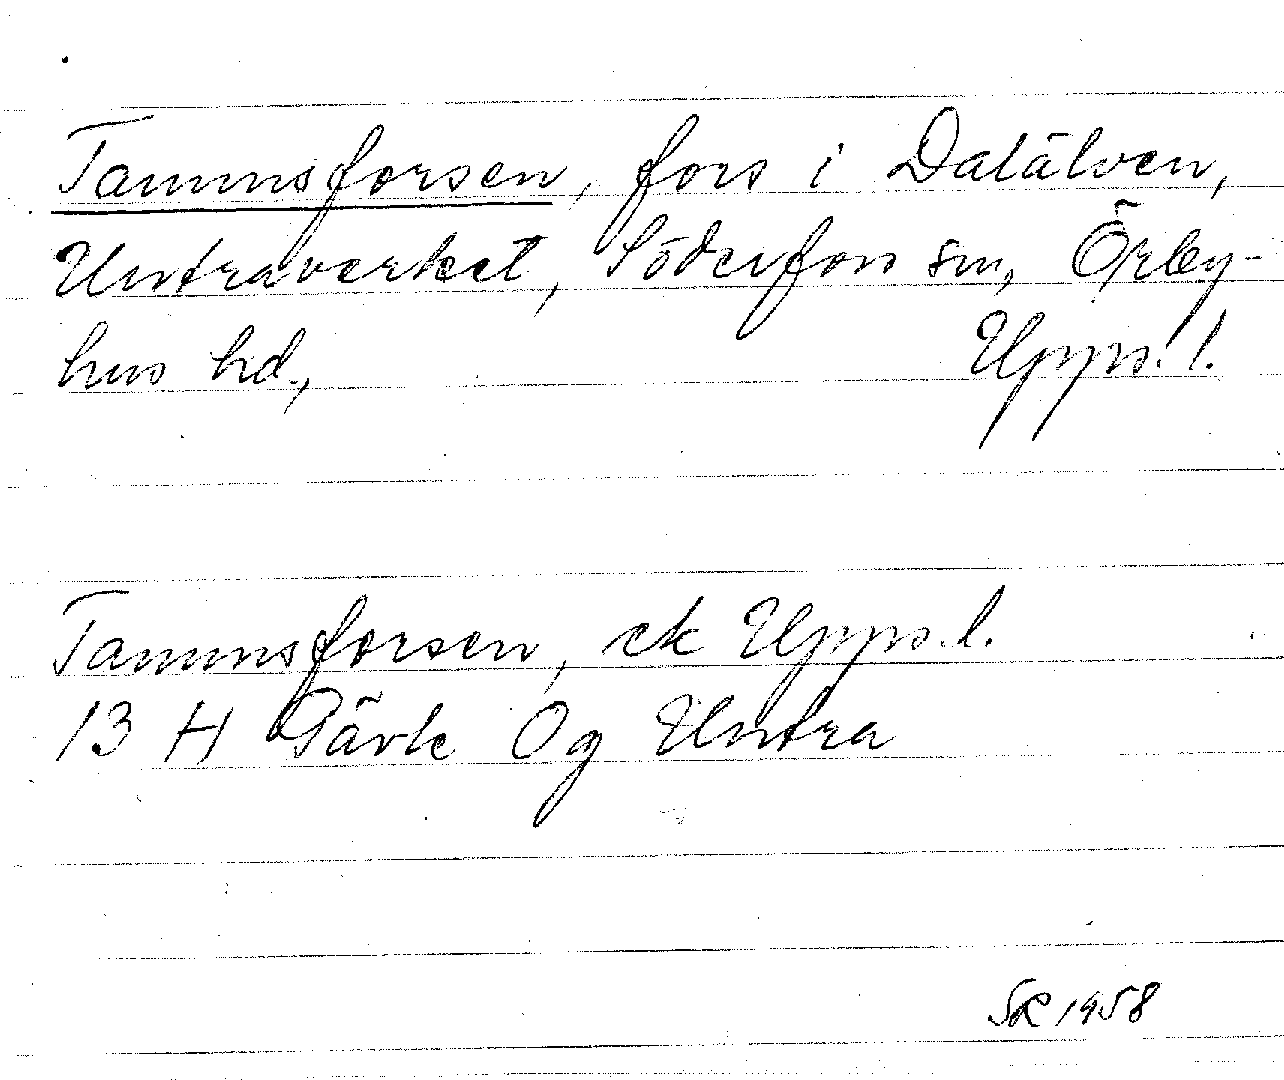 Tammsforsen, fors i Dalälven,
Untraverket, Söderfors sn, Örby-
hus hd., Upps. l.
Tammsforsen, ek Upps. l.
13 H Gävle Og Untra
SR 1958